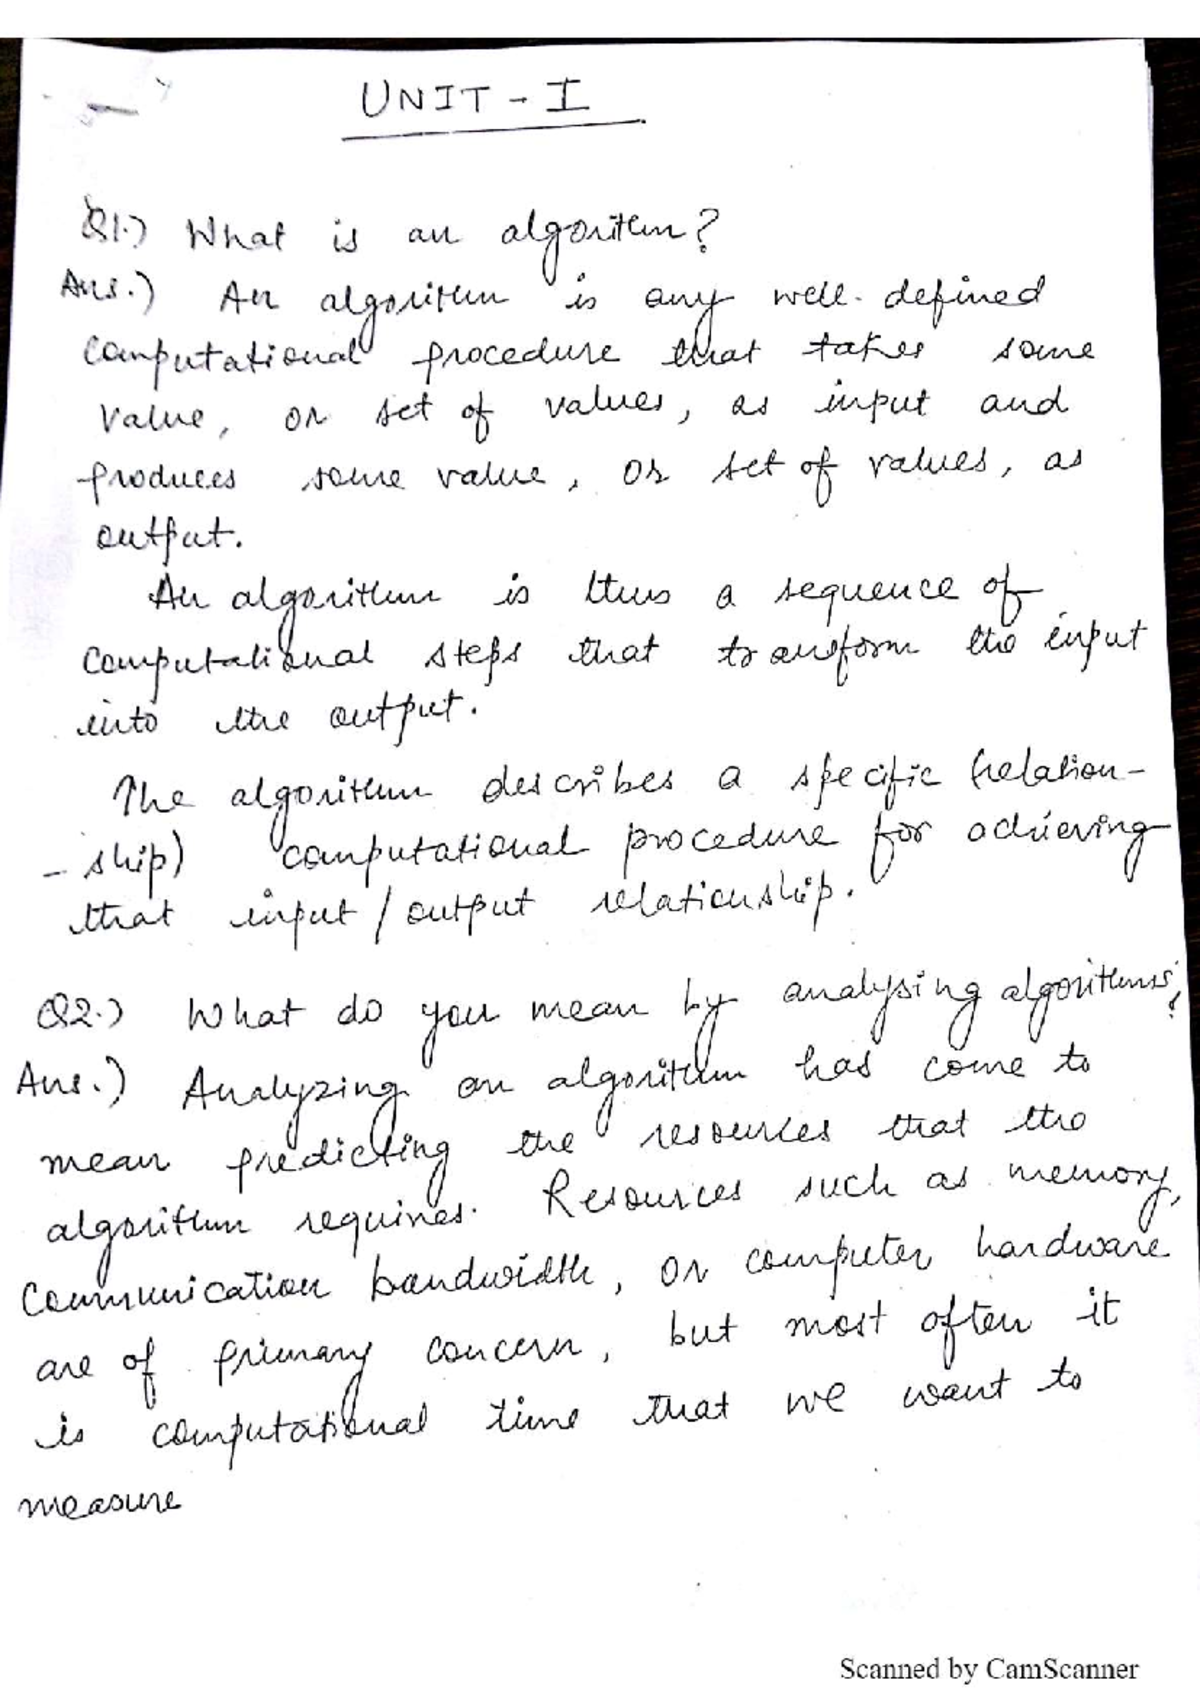 UNIT - I
Q1.) What is an algorithm?
Ans.) An algorithm is any well-defined
computational procedure that takes some
value, or set of values, as input and
produces some value, or set of values, as
output.
An algorithm is thus a sequence of
computational steps that transform the input
into the output.
The algorithm describes a specific (relation-
- ship) computational procedure for achieving
that input / output relationship.
Q2.) What do you mean by analysing algorithms?
Ans.) Analyzing an algorithm has come to
mean predicting the resources that the
algorithm requires. Resources such as memory,
communication bandwidth, or computer hardware
are of primary concern, but most often it
is computational time that we want to
measure
Scanned by CamScanner